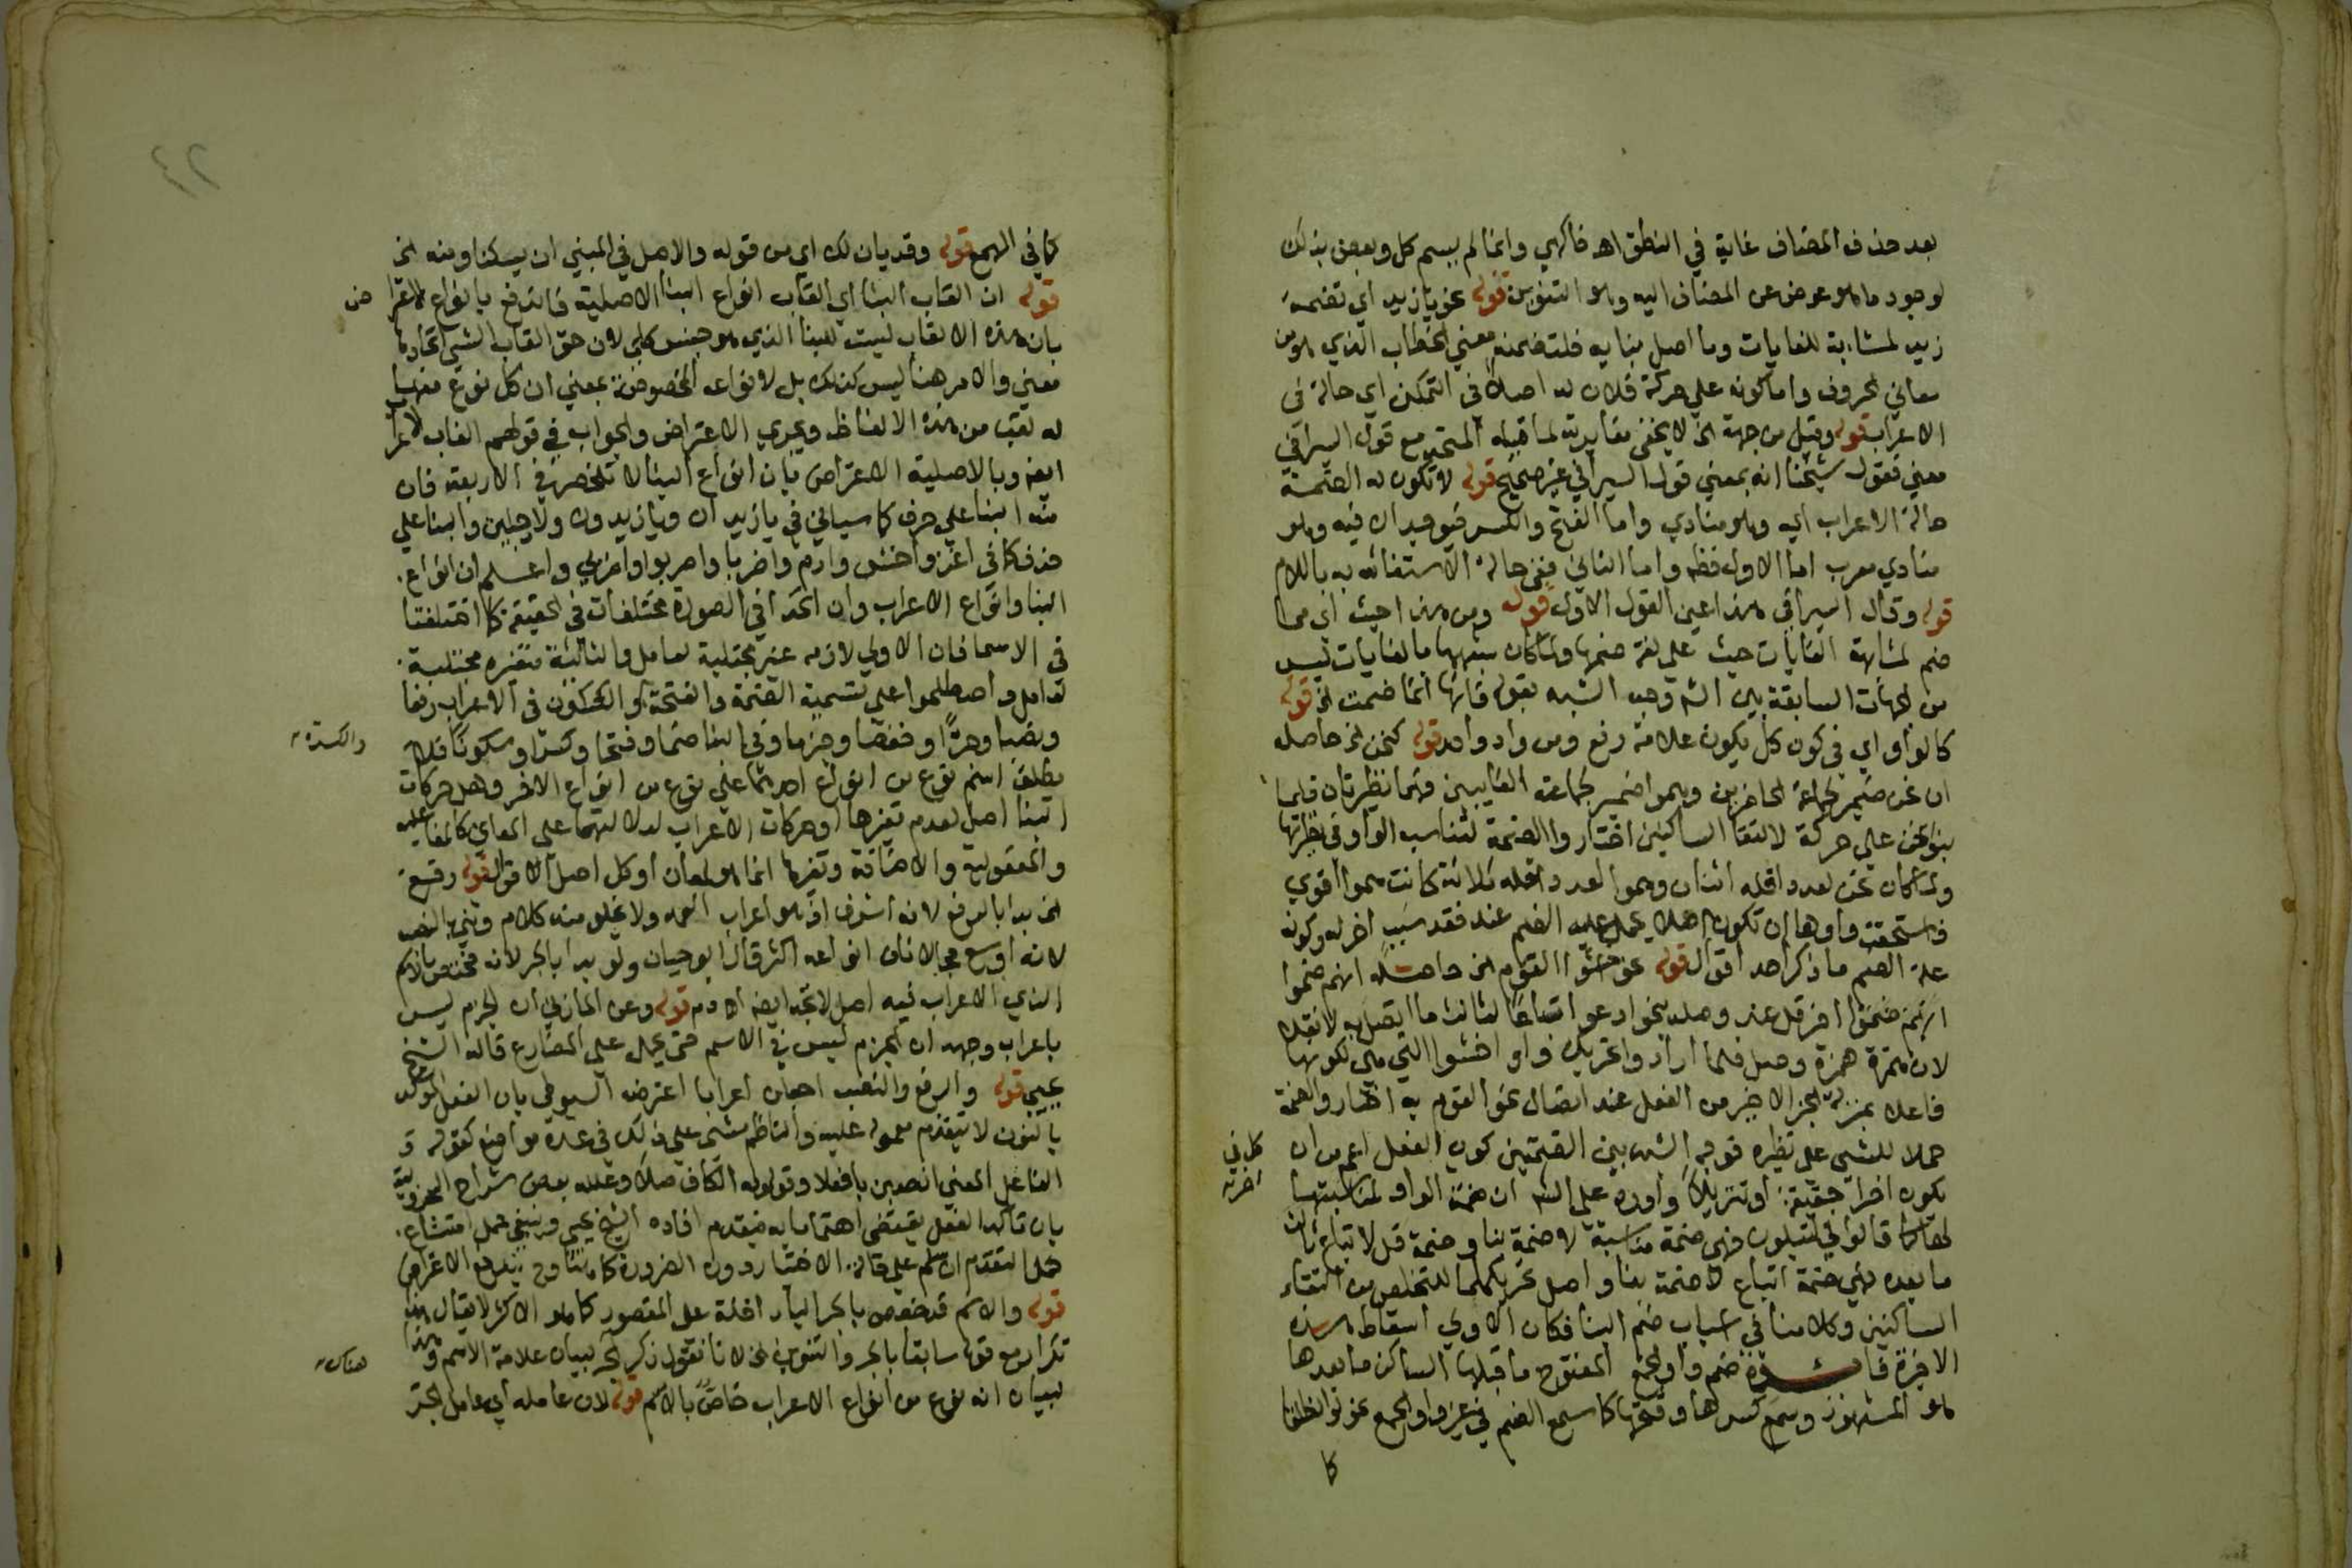 بعد حذف المضاف غاية في النطق اهـ فاكهي وانما لم يسم كل وبعض بذلك
لوجود ما هو عوض عن المضاف اليه وهو التنوين قوله نحو يا زيد اي تضمه
زيد لمشابهة للغايات وما اصل بنايه فلتضمنه معني الخطاب الذي هو من
معاني الحروف واما كونه علي حركة فلان له اصلا في التمكن اي حالة في
الاعراب قوله وقيل من جهة الخ لا يخفي مغايرته لما قبله المتحد مع قول السيرافي
معني فقول شيخنا انه بمعني قول السيرافي غير صحيح قوله لا تكون له الضمة
حالة الاعراب اي وهو منادي واما الفتح والكسر فيوجدان فيه وهو
منادي معرب اما الاول فظ واما الثاني ففي حالة الاستغاثة به باللام
قوله وقال السيرافي هذا عين القول الاول قوله ومن هذا حيث اي مما
ضم لمشابهة الغايات حيث علي لغة ضمها ولما كان شبهها بالغايات ليس
من الجهات السابقة بين الش وجه الشبه بقوله فانها انما ضمت الخ قوله
كالواو اي في كون كل يكون علامة رفع ومن واد واحد قوله كنحن الخ حاصله
ان نحن ضمير لجماعة الحاضرين وهموا ضمير لجماعة الغايبين فهما نظيرتان فلما
بنوا نحن علي حركة لالتقا الساكنين اختاروا الضمة لتناسب الواو في نظيرتها
ولما كان نحن لعدد اقله اثنان وهموا لعدد اقله ثلاثة كانت هموا اقوي
فاستحقت واوها ان تكون اصلا يحمل عليه الضم عند فقد سبب اخر له وكونه
علة الضم ما ذكر احد اقوال قوله نحو اخشوا القوم الخ حاصله انهم ضموا
لان همزة همزة وصل فلما ارادوا تحريك واو اخشوا التي هي لكونها
فاعلا بمنزلة الجزء الاخير من الفعل عند اتصال نحو القوم به اختاروا الضمة
حملا للشي علي نظيره قوله الش بين الضمتين كون الفعل اعم من ان
يكون اخرا حقيقة او تنزيلا واورد علي الش ان ضمة الواو لمناسبتها
لها كما قالوا في لتبلون فهي ضمة مناسبة لا ضمة بنا وضمة قل لاتباع ثالث
ما بعده فهي ضمة اتباع لا ضمة بنا واصل تحريكهما للتخلص من التقاء
الساكنين وكلامنا في اسباب ضم البنا فكان الاولي اسقاط هذه
الاخيرة فائدة ضم واو الجمع المفتوح ما قبلها الساكن ما بعدها
هو المشهور وسمع كسرها وفتحها كما سمع الضم في غير واو الجمع نحو لو انطلقنا
كما
كل في
اخره
٤٢
كما في الهمع قوله وقد بان لك اي من قوله والاصل في المبني ان يسكنا ومنه الخ
قوله ان القاب البنا اي القاب انواع البنا الاصلية فاندفع بانواع الاعترا
ض
بان هذه الالقاب ليست للبنا الذي هو جنس كلي لان حق القاب الشي اتحادها
معني والامر هنا ليس كذلك بل لانواعه المخصوصة بمعني ان كل نوع منها
له لقب من هذه الالفاظ ويجري الاعتراض والجواب في قولهم القاب الاعرا
ايضا وبالاصلية الاعتراض بان انواع البنا لا تنحصر في الاربعة فان
منه البنا علي حرف كما سياتي في يا زيدان ويا زيدون ولا رجلين والبنا علي
حذف كما في اغز واخش وارم واضربا واضربوا واضربي واعلم ان انواع
البنا وانواع الاعراب وان اتحدا في الصورة مختلفات في الحقيقة كما اختلفتا
في الاسما فان الاولي لازمه غير مجتلبة لعامل والثانية متغيره مجتلبة
لعامل واصطلحوا علي تسمية الضمة والفتحة والسكون في الاعراب رفعا
والكسرة
ونصبا وجرا وخفضا وجزما وفي البنا ضما وفتحا وكسرا وسكونا فلا
يطلق اسم نوع من انواع احدهما علي نوع من انواع الاخر وهل حركات
البنا اصل لعدم تغيرها او حركات الاعراب لدلالتها علي المعاني كالفاعليه
والمفعولية والاضافة وتغيرها انما هو لمعان او كل اصل الاقوال قوله رفع
الخ بدا بالرفع لانه اشرف اذ هو اعراب العمد ولا يخلو منه كلام وثني بالنصب
لانه اوسع مجالا فان انواعه اكثر قال ابو حيان ولو بدا بالجر لانه مختص بالاسم
الذي الاعراب فيه اصل لاتجه ايضا اهـ دم قوله وعن المازني ان الجزم ليس
باعراب وجهه ان الجزم ليس في الاسم حتي يحمل علي المضارع قاله الشيخ
يحيي قوله والرفع والنصب اجعلن اعرابا اعترضه السيوطي بان الفعل الموكد
بالنون لا يتقدم معموله عليه والناظم مشي علي ذلك في عدة مواضع كقوله و
الفاعل المعني انصبن بافعلا وقوله وبه الكاف صلا وعلله بعض شراح الجزرية
بان تاكيد الفعل يقتضي اهتماما به فيقدم افاده الشيخ يحيي وينبغي حمل امتناع
هذا التقدم ان سلم علي حالة الاختيار دون الضرورة كما هنا وح يندفع الاعتراض
قوله والاسم قد خصص بالجر اليا داخلة علي المقصور كما هو الاكثر لا يقال هذا
تكرار مع قوله سابقا بالجر والتنوين الخ لانا نقول ذكر الجر لبيان علامة الاسم وهذا
هناك
لبيان انه نوع من انواع الاعراب خاص بالاسم قوله لان عامله اي عامل الجر